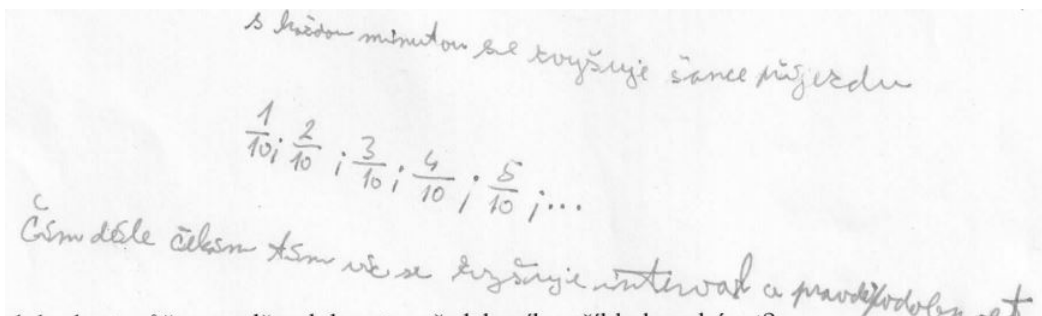 s každou minutou se zvyšuje šance příjezdu
1/10; 2/10; 3/10; 4/10; 5/10; ...
Čím déle čekám tím víc se zvyšuje interval a pravděpodobnost